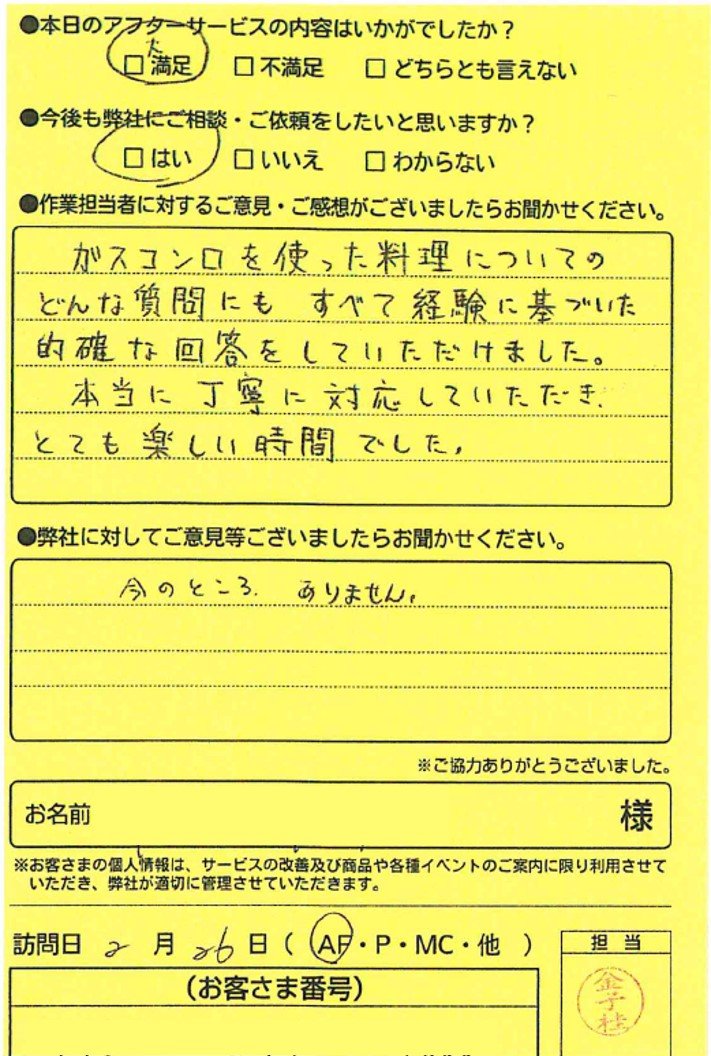 ●本日のアフターサービスの内容はいかがでしたか？
大
□ 満足　□ 不満足　□ どちらとも言えない
●今後も弊社にご相談・ご依頼をしたいと思いますか？
□ はい　□ いいえ　□ わからない
●作業担当者に対するご意見・ご感想がございましたらお聞かせください。
ガスコンロを使った料理についての
どんな質問にも すべて経験に基づいた
的確な回答をしていただけました。
本当に丁寧に対応していただき、
とても楽しい時間でした。
●弊社に対してご意見等ございましたらお聞かせください。
今のところ、ありません。
※ご協力ありがとうございました。
お名前　様
※お客さまの個人情報は、サービスの改善及び商品や各種イベントのご案内に限り利用させて
いただき、弊社が適切に管理させていただきます。
訪問日 2 月 26 日（ AF・P・MC・他 ）
担 当
（お客さま番号）
金子